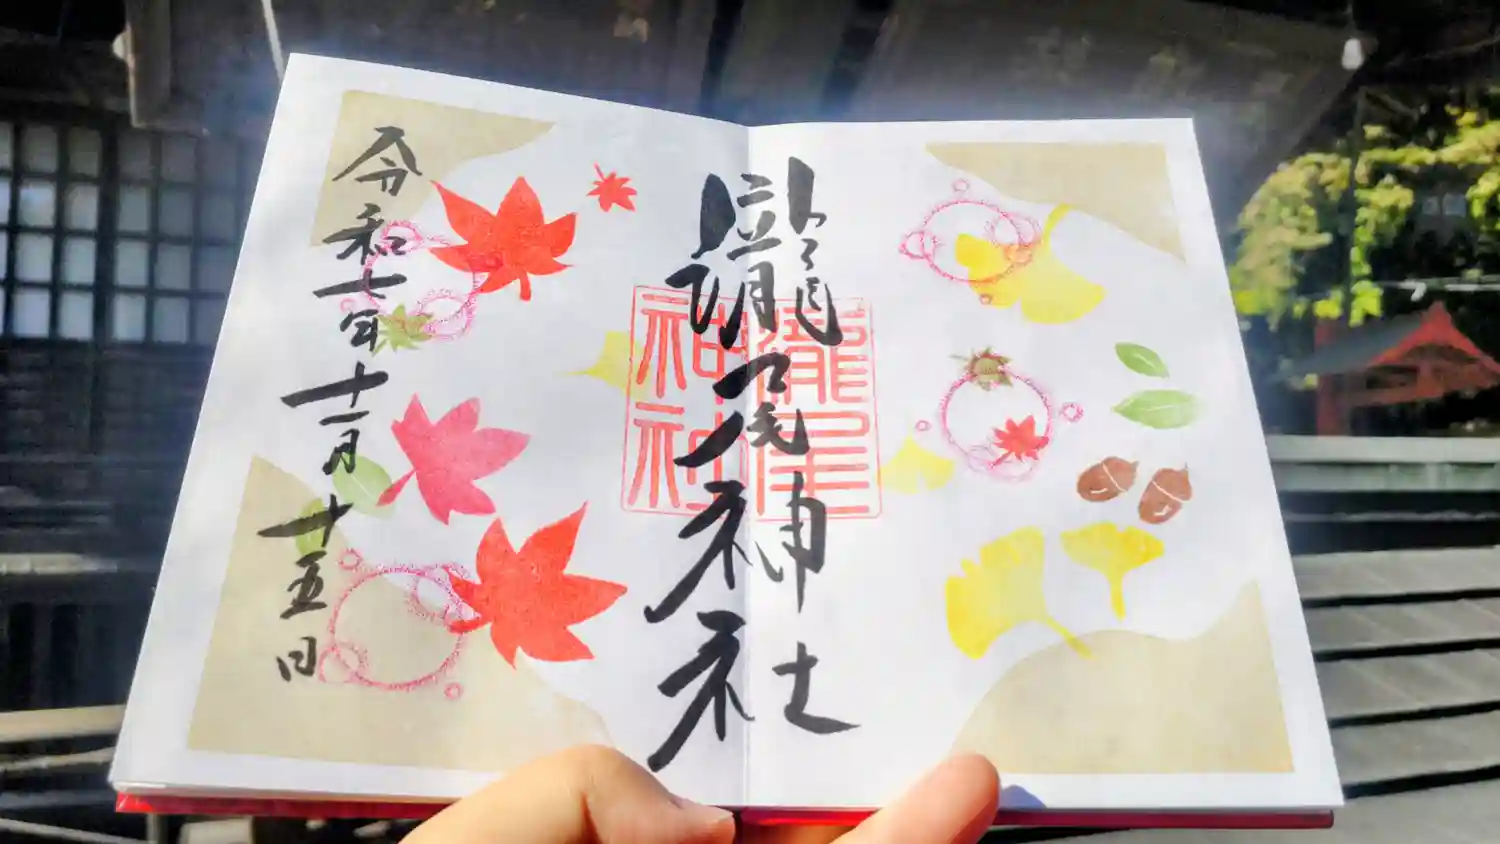 瀧尾神社
瀧尾
神社
令和七年十一月十五日